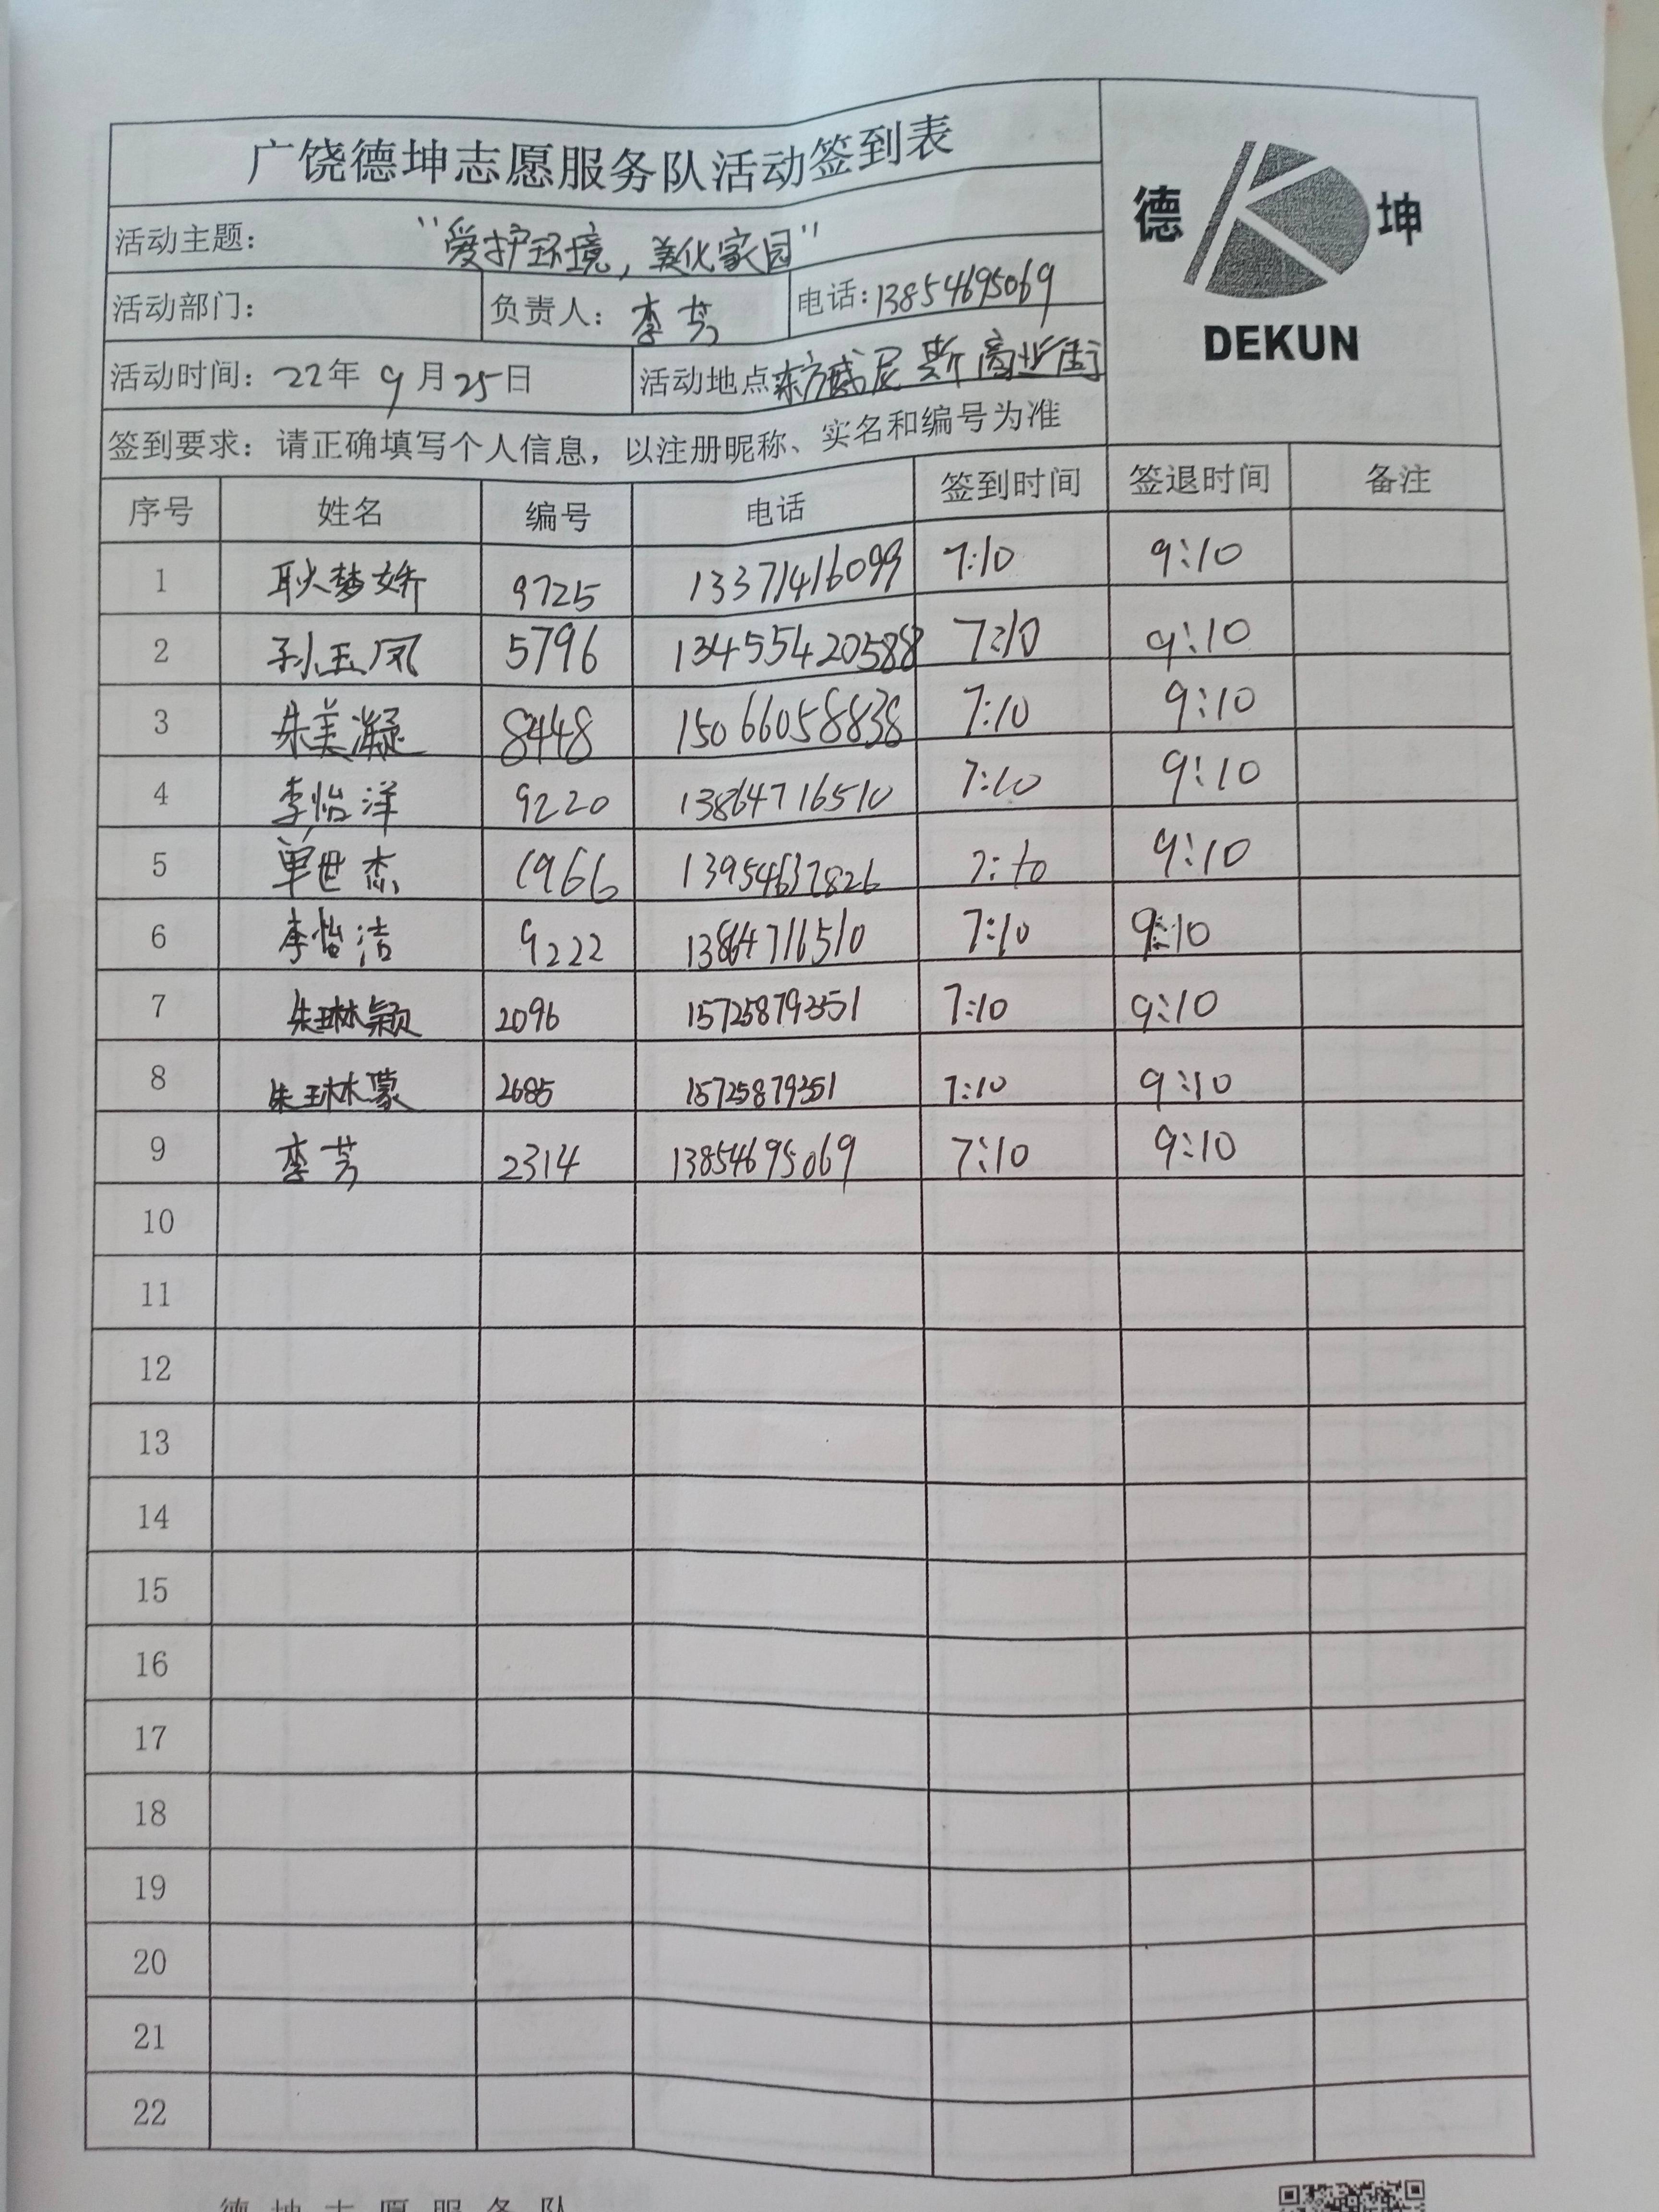 广饶德坤志愿服务队活动签到表
德 坤
DEKUN
活动主题： "爱护环境，美化家园"
活动部门： 负责人：李芳 电话：13854695069
活动时间：22年9月25日 活动地点 东方威尼斯商业街
签到要求：请正确填写个人信息，以注册昵称、实名和编号为准
序号 姓名 编号 电话 签到时间 签退时间 备注
1 耿梦娇 9725 13371416099 7:10 9:10
2 孙玉凤 5796 13455420588 7:10 9:10
3 朱美凝 8448 15066058838 7:10 9:10
4 李怡洋 9220 13864716510 7:10 9:10
5 单世杰 1966 13954637826 7:10 9:10
6 李怡洁 9222 13864716510 7:10 9:10
7 朱琳颍 2096 15725879351 7:10 9:10
8 朱琳蒙 2685 15725879351 7:10 9:10
9 李芳 2314 13854695069 7:10 9:10
10
11
12
13
14
15
16
17
18
19
20
21
22
德坤志愿服务队